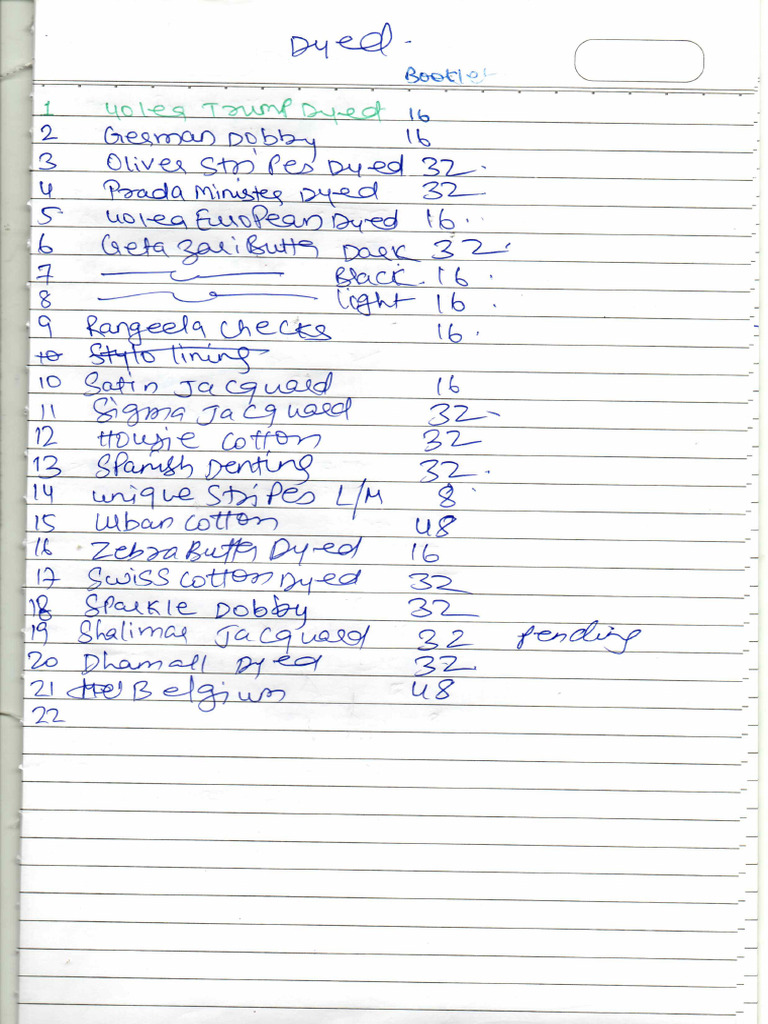 Dyed -
Booklet
1 40lea Trump Dyed 16
2 German Dobby 16
3 Oliver Stripes Dyed 32
4 Prada Minister Dyed 32
5 40lea European Dyed 16
6 Geta Zari Butta Dark 32
7 Black 16
8 light 16
9 Rangeela Checks 16
10 Stylo lining
10 Satin Jacquard 16
11 Sigma Jacquard 32
12 Housie Cotton 32
13 Spanish Denting 32
14 unique Stripes L/M 8
15 Urban Cotton 48
16 Zebra Butta Dyed 16
17 Swiss Cotton Dyed 32
18 Sparkle Dobby 32
19 Shalimar Jacquard 32 pending
20 Dhamall Dyed 32
21 Belgium 48
22